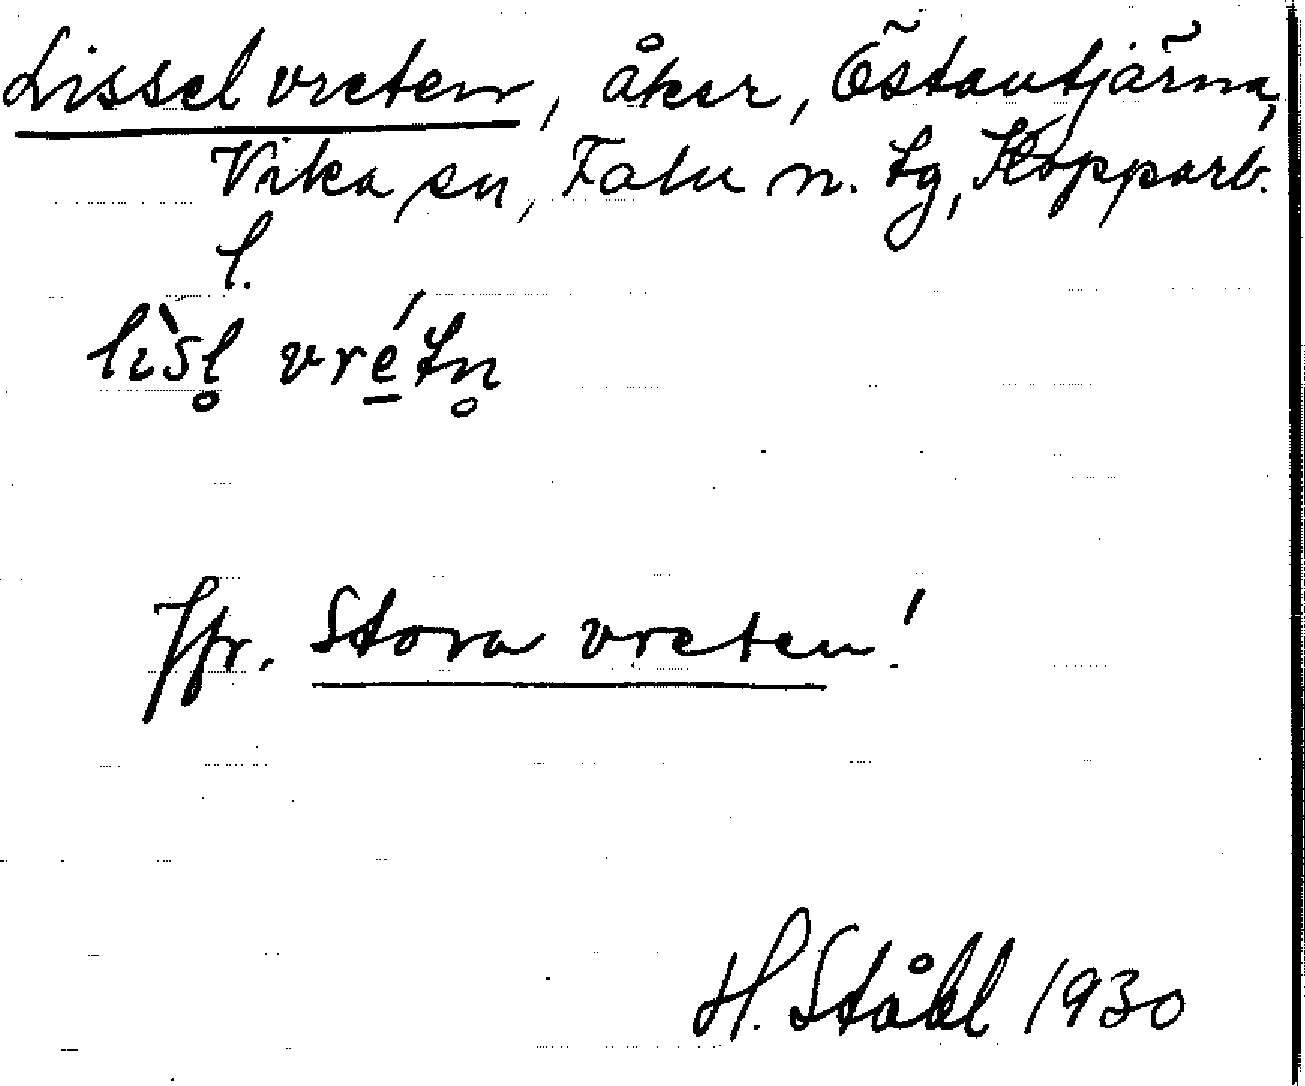 Lissel vreten, åker, Östantjärna,
Vika sn, Falu n. tg, Kopparb.
l.
lìsl̥ vré̲tn̥
Jfr. Stora vreten!
H. Ståhl 1930